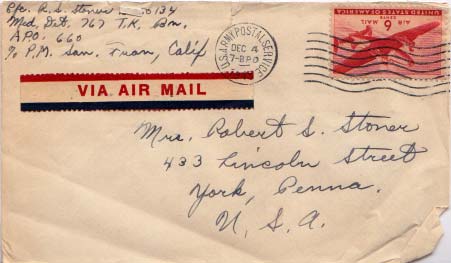 Pfc. R. S. Stoner
Med. Det. 767 T.K. Bn.
A.P.O. 660
% P.M. San. Fran, Calif
U.S. ARMY POSTAL SERVICE
DEC 4
7-8PM
6
CENTS
AIR MAIL
UNITED STATES OF AMERICA
VIA AIR MAIL
Mrs. Robert S. Stoner
433 Lincoln Street
York, Penna.
U. S. A.